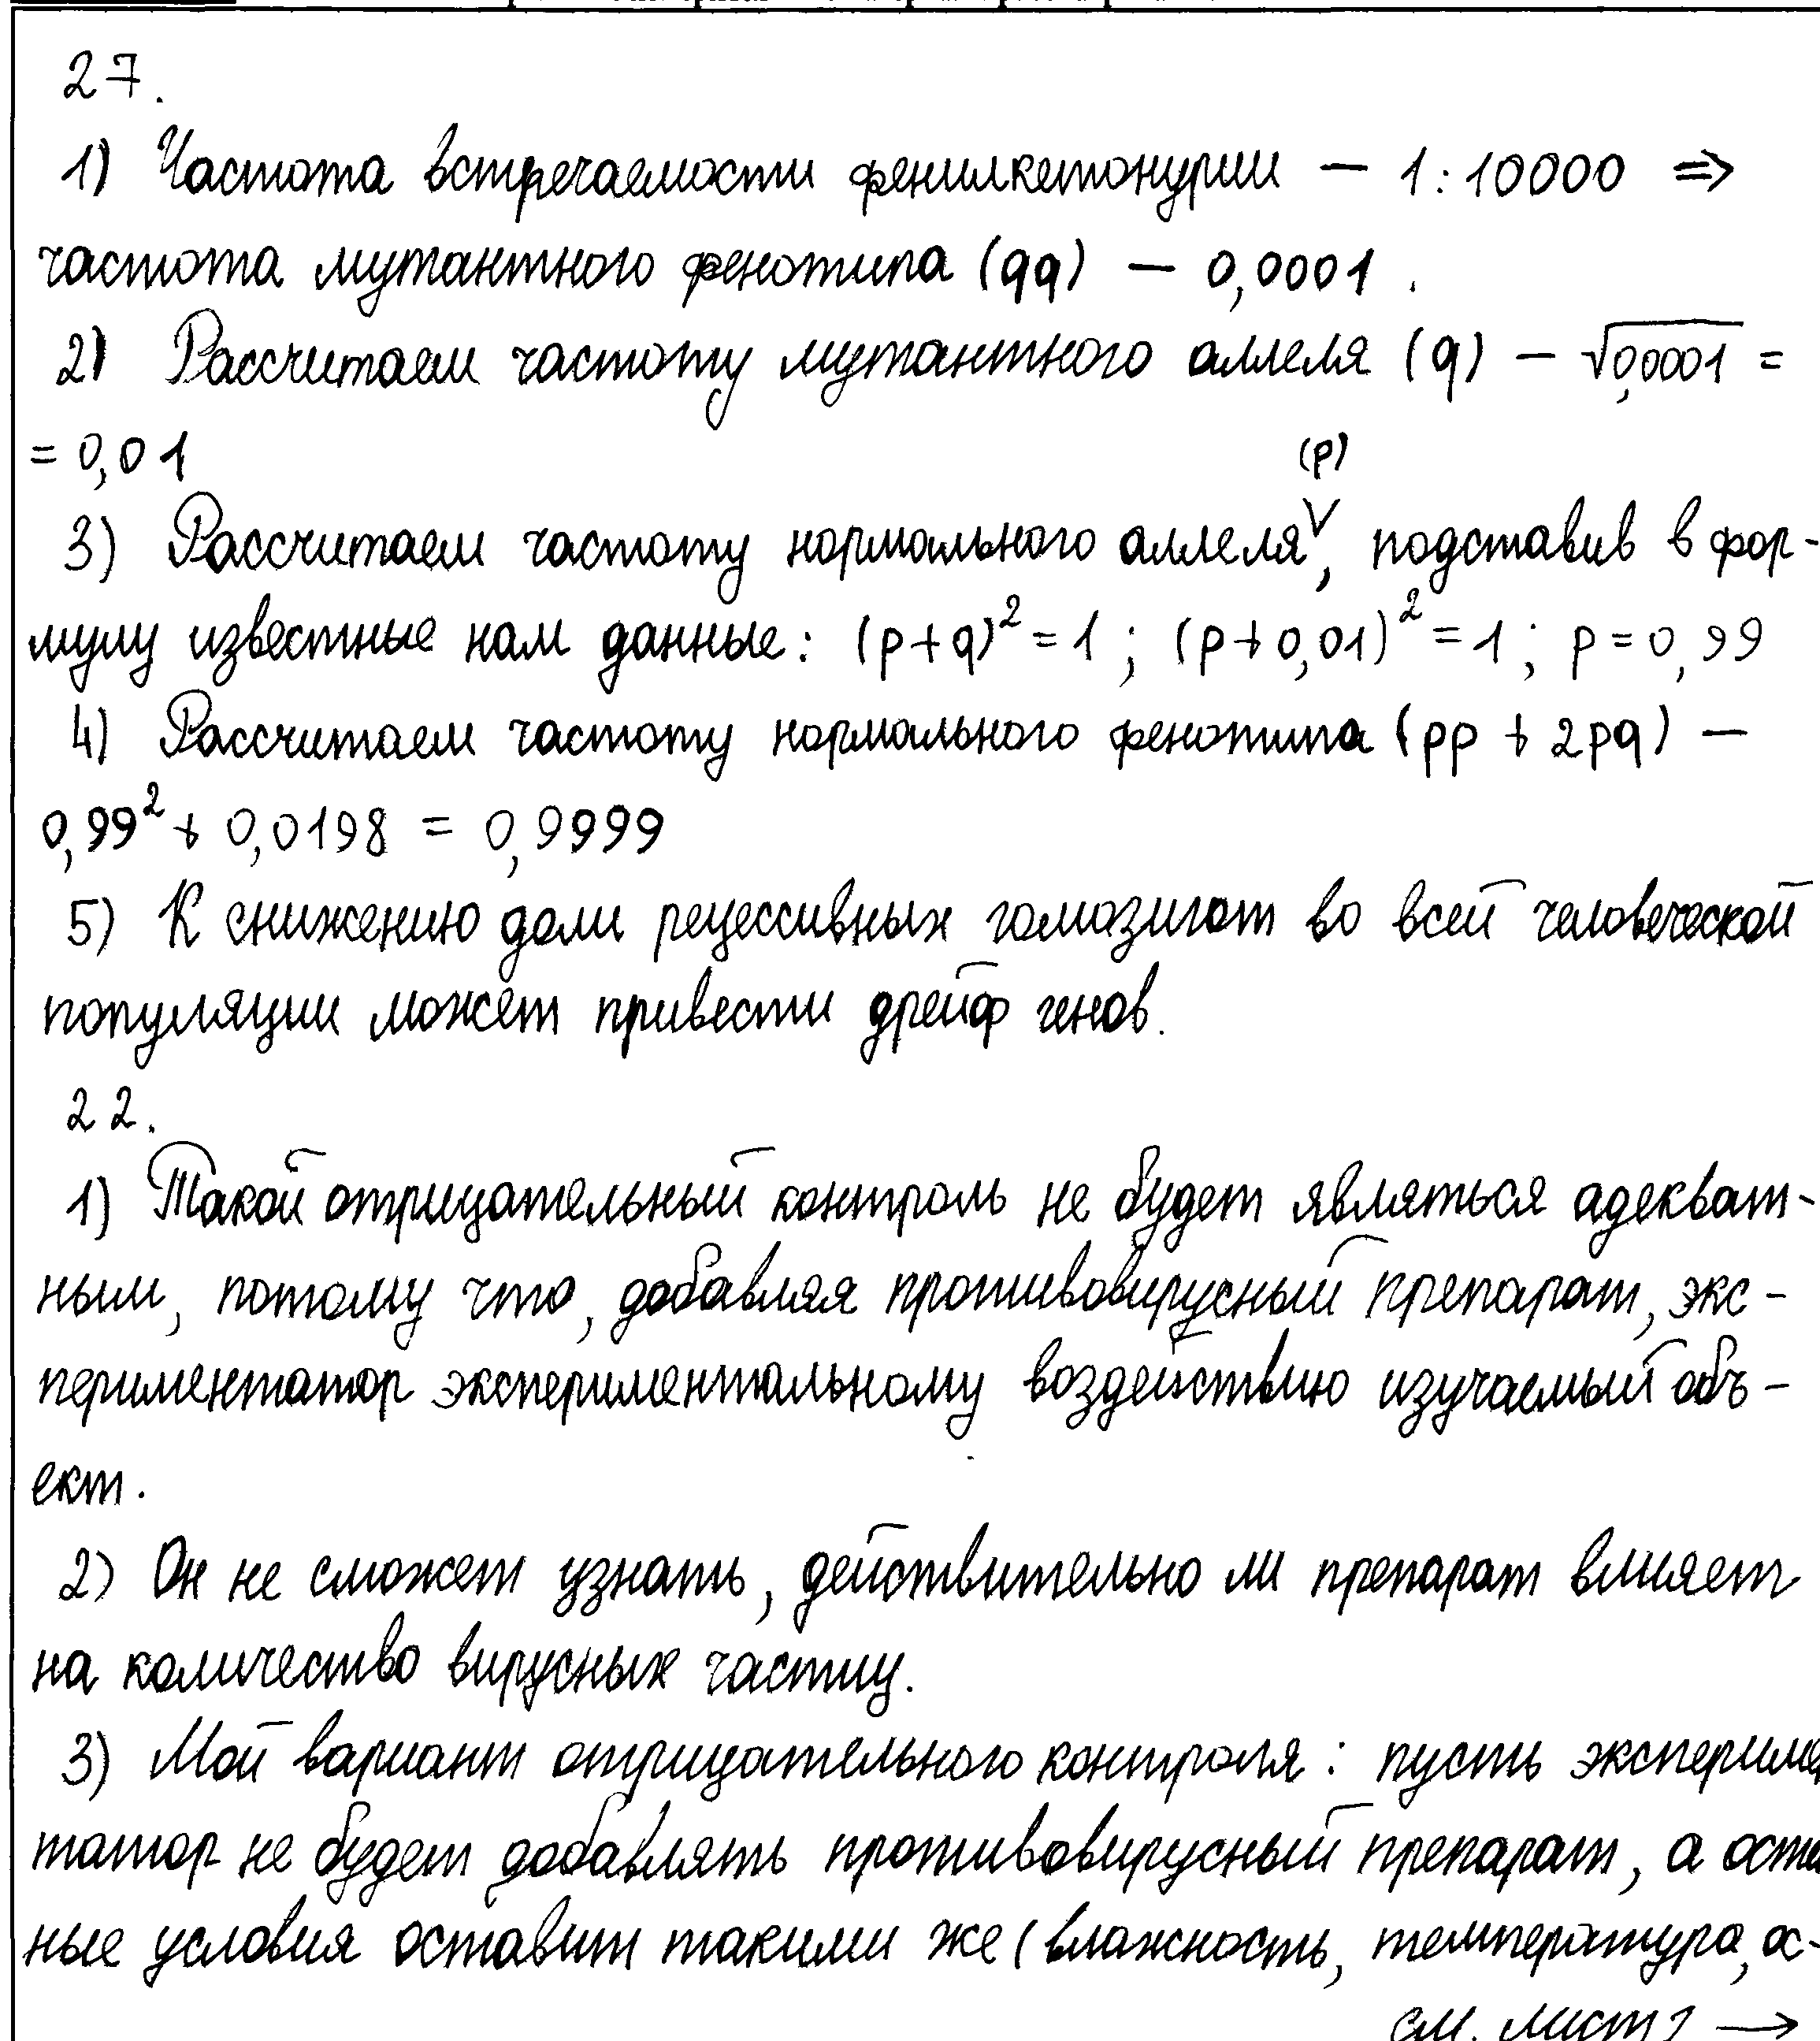 27.
1) Частота встречаемости фенилкетонурии — 1:10000 ⇒
частота мутантного фенотипа (qq) — 0,0001.
2) Рассчитаем частоту мутантного аллеля (q) — √0,0001 =
= 0,01
(p)
3) Рассчитаем частоту нормального аллеля V, подставив в фор-
мулу известные нам данные: (p+q)² = 1; (p+0,01)² = 1; p = 0,99
4) Рассчитаем частоту нормального фенотипа (pp + 2pq) —
0,99² + 0,0198 = 0,9999
5) К снижению доли рецессивных гомозигот во всей человеческой
популяции может привести дрейф генов.
22.
1) Такой отрицательный контроль не будет являться адекват-
ным, потому что, добавляя противовирусный препарат, экс-
периментатор экспериментальному воздействию изучаемый объ-
ект.
2) Он не сможет узнать, действительно ли препарат влияет
на количество вирусных частиц.
3) Мой вариант отрицательного контроля: пусть эксперимен
татор не будет добавлять противовирусный препарат, а оста
ные условия оставит такими же (влажность, температура,
см. лист